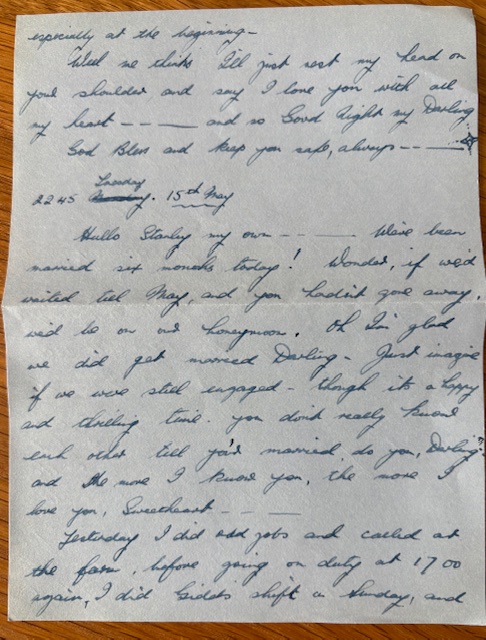 especially at the beginning -
Well me thinks I'll just rest my head on
your shoulder and say I love you with all
my heart - - - — and so Good Night my Darling
God Bless and keep you safe, always - - - —
2245 Tuesday. 15th May
Hullo Stanley my own - - - - — We've been
married six months today! Wonder, if we'd
waited till May, and you hadn't gone away,
we'd be on our honeymoon. Oh I'm glad
we did get married Darling - Just imagine
if we were still engaged - though its a happy
and thrilling time. you don't really know
each other till you're married, do you, Darling?
and the more I know you, the more I
love you, Sweetheart - - - —
Yesterday I did odd jobs and called at
the farm, before going on duty at 1700
again, I did shift on Sunday, and